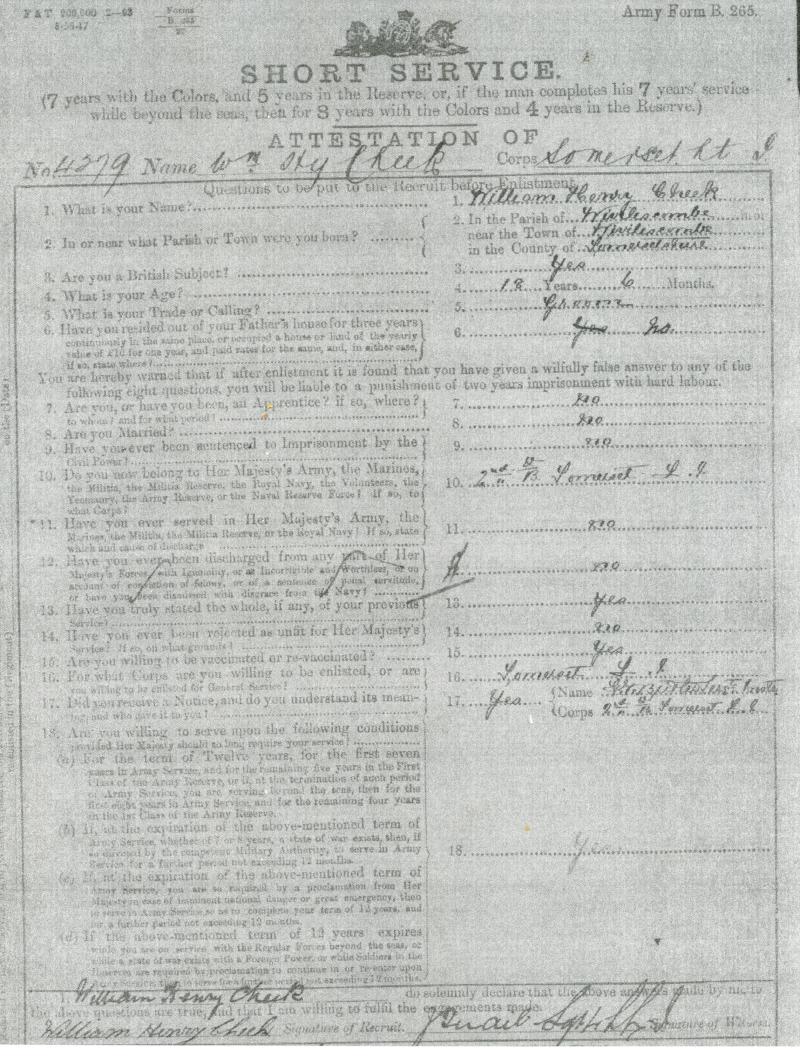 F & T 200,000 2—93 Forms B. 265 Army Form B. 265.
SHORT SERVICE.
(7 years with the Colors, and 5 years in the Reserve, or, if the man completes his 7 years' service
while beyond the seas, then for 8 years with the Colors and 4 years in the Reserve.)
ATTESTATION OF
No 4279 Name Wm Hy Cheek Corps Somerset Lt I
Questions to be put to the Recruit before Enlistment.
1. What is your Name? 1. William Henry Cheek
2. In or near what Parish or Town were you born? 2. In the Parish of Wiveliscombe
near the Town of Wiveliscombe
in the County of Somersetshire
3. Are you a British Subject? 3. Yes
4. What is your Age? 4. 18 Years 6 Months.
5. What is your Trade or Calling? 5. Groom
6. Have you resided out of your Father's house for three years 6. Yes No
continuously in the same place, or occupied a house or land of the yearly
value of £10 for one year, and paid rates for the same, and, in either case,
if so, state where?
You are hereby warned that if after enlistment it is found that you have given a wilfully false answer to any of the
following eight questions, you will be liable to a punishment of two years imprisonment with hard labour.
7. Are you, or have you been, an Apprentice? if so, where? 7. no
to whom? and for what period?
8. Are you Married? 8. no
9. Have you ever been sentenced to Imprisonment by the 9. no
Civil Power?
10. Do you now belong to Her Majesty's Army, the Marines, 10. 2nd Bn Somerset L. I
the Militia, the Militia Reserve, the Royal Navy, the Volunteers, the
Yeomanry, the Army Reserve, or the Naval Reserve Force? If so, to
what Corps?
*11. Have you ever served in Her Majesty's Army, the 11. no
Marines, the Militia, the Militia Reserve, or the Royal Navy? If so, state
which and cause of discharge
12. Have you ever been discharged from any part of Her no
Majesty's Forces, with Ignominy, or as Incorrigible and Worthless, or on
account of conviction of felony, or of a sentence of penal servitude,
or have you been dismissed with disgrace from the Navy?
13. Have you truly stated the whole, if any, of your previous 13. Yes
Service?
14. Have you ever been rejected as unfit for Her Majesty's 14. no
Service? If so, on what grounds?
15. Are you willing to be vaccinated or re-vaccinated? 15. Yes
16. For what Corps are you willing to be enlisted, or are 16. Somerset L. I
you willing to be enlisted for General Service?
17. Did you receive a Notice, and do you understand its mean- 17. Yes Name
ing, and who gave it to you? Corps 2nd Bn Somerset L. I
18. Are you willing to serve upon the following conditions
provided Her Majesty should so long require your service?
(a) For the term of Twelve years, for the first seven
years in Army Service, and for the remaining five years in the First
Class of the Army Reserve, or if, at the termination of such period
of Army Service, you are serving beyond the seas, then for the
first eight years in Army Service, and for the remaining four years
in the 1st Class of the Army Reserve.
(b) If, at the expiration of the above-mentioned term of
Army Service, whether of 7 or 8 years, a state of war exists, then, if
so directed by the competent Military Authority, to serve in Army
Service for a further period not exceeding 12 months.
18. Yes
(c) If, at the expiration of the above-mentioned term of
Army Service, you are so required by a proclamation from Her
Majesty in case of imminent national danger or great emergency, then
to serve in Army Service, so as to complete your term of 12 years, and
for a further period not exceeding 12 months.
(d) If the above-mentioned term of 12 years expires
while you are on service with the Regular Forces beyond the seas, or
while a state of war exists with a Foreign Power, or while Soldiers in the
Reserve are required by proclamation to continue in or re-enter upon
Army Service, to serve for a further period not exceeding 12 months.
I, William Henry Cheek do solemnly declare that the above answers made by me to
the above questions are true, and that I am willing to fulfil the engagements made.
William Henry Cheek Signature of Recruit. Signature of Witness.